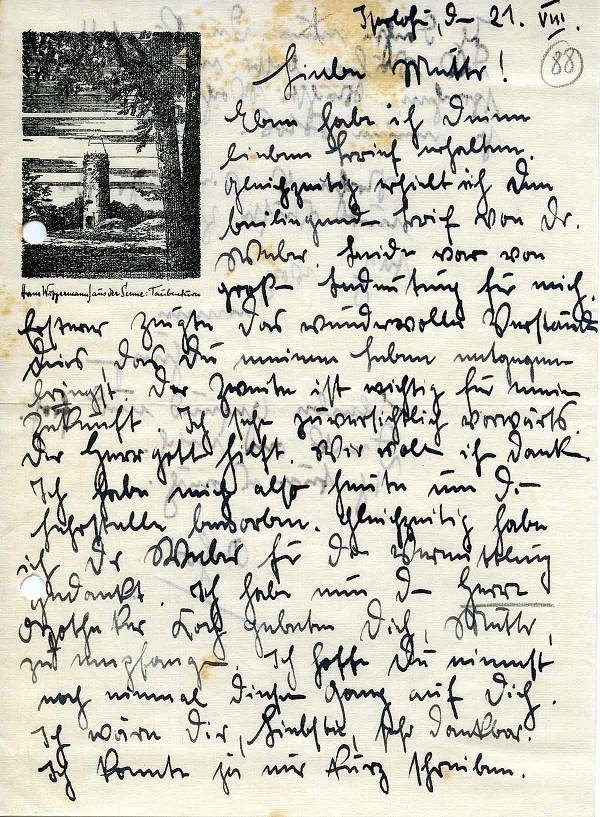 Iserlohn, d. 21. VIII.
88
Liebe Mutter!
Eben habe ich Deinen
lieben Brief erhalten.
Gleichzeitig erhielt ich den
beiliegenden Brief von Dr.
Weber. Beide war von
große Bedeutung für mich.
Hans Woppermann, aus der Senne: Taubenturm
Ersterer zeugte das wundervolle Verständ
nis, daß Du meinem Leben entgegen
bringst. Der zweite ist wichtig für meine
Zukunft. Ich sehe zuversichtlich vorwärts.
Der Herrgott hilft. Wie wollt ich danken.
Ich habe mich also heute um die
Lehrstelle beworben. Gleichzeitig habe
ich Dr. Weber für die Vermittlung
gedankt. Ich habe nun d. Herrn
Apotheker gebeten Dich, Mutter,
zu empfangen. Ich hoffe Du nimmst
noch einmal diesen Gang auf Dich.
Ich wäre Dir, Liebste, sehr dankbar.
Ich konnte ja nur kurz schreiben.